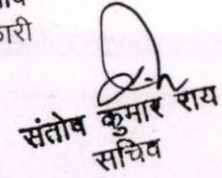 कारी
संतोष कुमार राय
सचिव